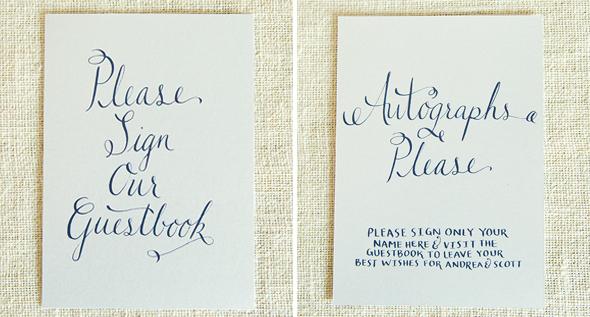 Please
Sign
Our
Guestbook
Autographs
Please
PLEASE SIGN ONLY YOUR
NAME HERE & VISIT THE
GUESTBOOK TO LEAVE YOUR
BEST WISHES FOR ANDREA & SCOTT